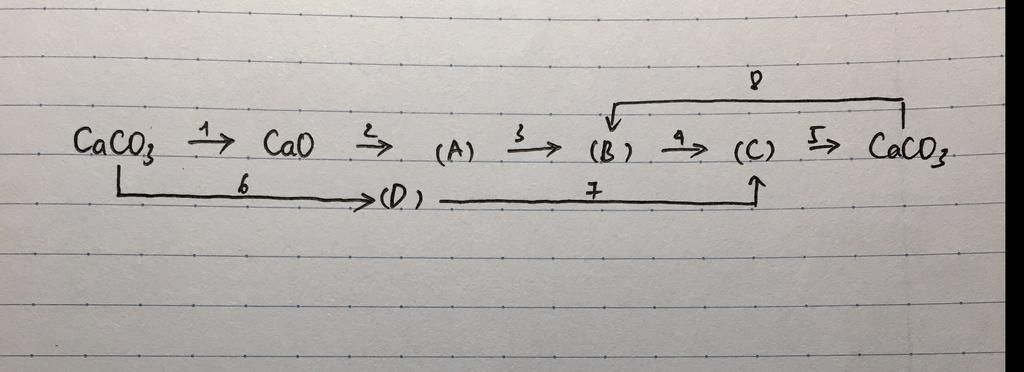 8
CaCO₃ 1→ CaO 2→ (A) 3→ (B) 4→ (C) 5→ CaCO₃
6 → (D) 7